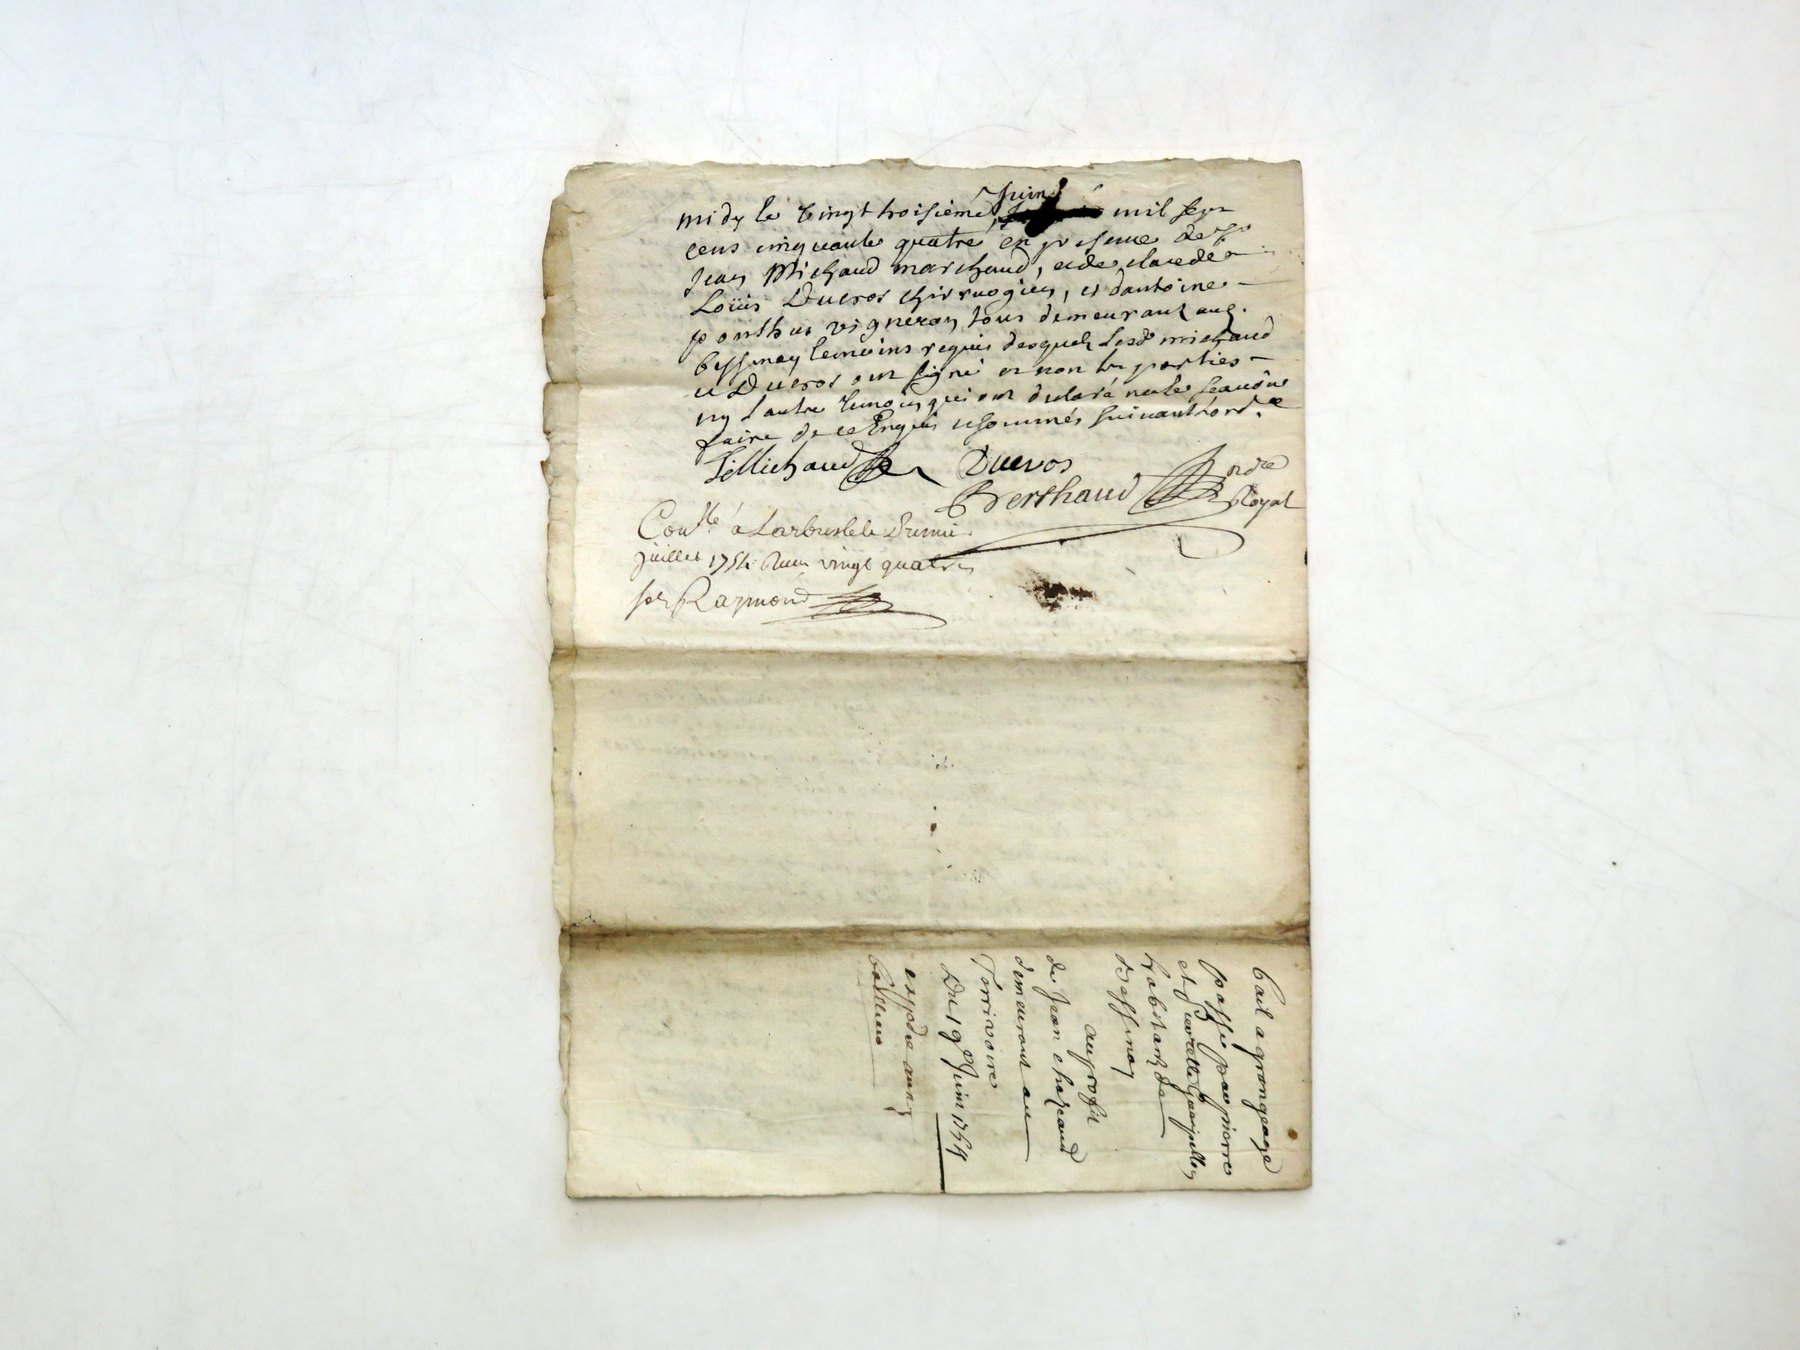 midy le vingt troisieme Juin mil sept
cens cinquante quatre en presence de Sr
Jean Michaud marchand, et de claude
Loüis Ducros chirurgien, et d'antoine
ponthus vigneron tous demeurant aud.
bessenay temoins requis desquels lesd michaud
et Ducros ont signé et non les parties
ny l'autre temoin qui ont declaré ne le scavoir
faire de ce Enquis et sommés suivant l'ord.ce
J Michaud Ducros
Berthaud Nore Royal
Con.lle a Larbresle le Premier
juillet 1754 Recu vingt quatre s
sols Raymond
bail a grangeage
passé par pierre
et
habitants de
Bessenay
au profit
de Jean chazaud
demeurant au
Du 19e Juin 1754
expedié aux